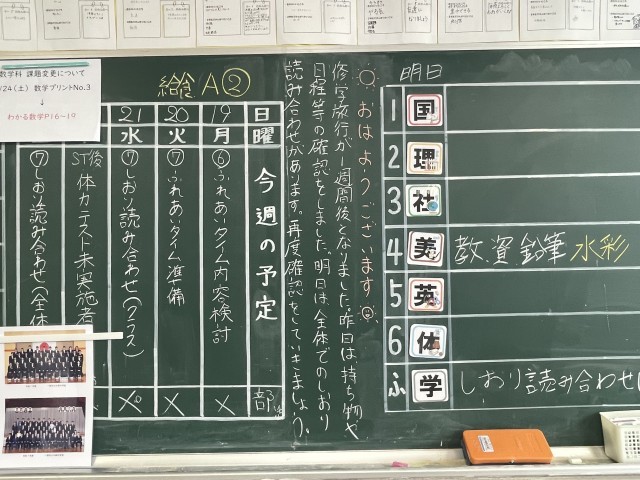 数学科 課題変更について
/24(土) 数学プリントNo.3
↓
わかる数学P16~19
給食 A②
明日
1 国
2 理
3 社
4 美 教,資 鉛筆 水彩
5 英
6 体
ふ 学 しおり読み合わせ
おはようございます
修学旅行が1週間後となりました。昨日は持ち物や
日程等の確認をしました。明日は全体でのしおり
読み合わせがあります。再度確認をしていきましょう。
今週の予定
日 曜 部
19 月 ⑥ふれあいタイム内容検討 ×
20 火 ⑦ふれあいタイム準備 ×
21 水 ⑦しおり読み合わせ(クラス)
ST後 体力テスト未実施者
⑦しおり読み合わせ(全体